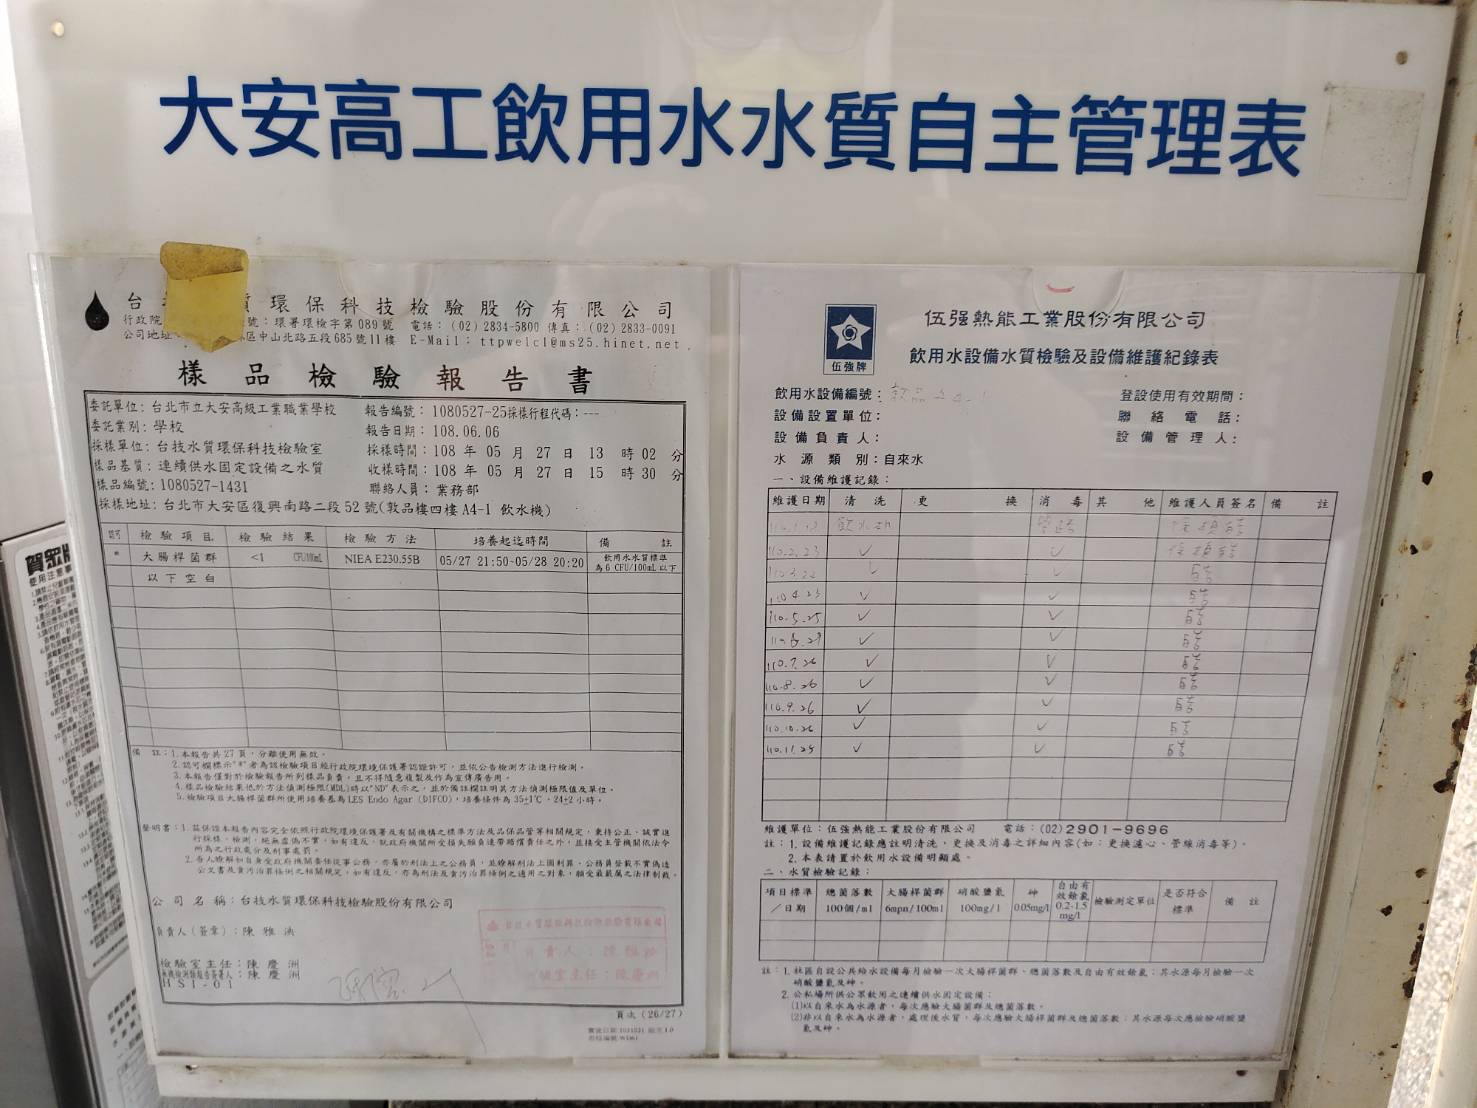 大安高工飲用水水質自主管理表
台 質環保科技檢驗股份有限公司
行政院 號：環署環檢字第089號 電話：(02)2834-5800 傳真：(02)2833-0091
公司地址 區中山北路五段685號11樓 E-Mail：ttpwelcl@ms25.hinet.net
樣品檢驗報告書
委託單位：台北市立大安高級工業職業學校 報告編號：1080527-25採樣行程代碼：---
委託業別：學校 報告日期：108.06.06
採樣單位：台技水質環保科技檢驗室 採樣時間：108年05月27日13時02分
樣品基質：連續供水固定設備之水質 收樣時間：108年05月27日15時30分
樣品編號：1080527-1431 聯絡人員：業務部
採樣地址：台北市大安區復興南路二段52號(敦品樓四樓A4-1飲水機)
認可 檢驗項目 檢驗結果 檢驗方法 培養起迄時間 備註
* 大腸桿菌群 <1 CFU/100mL NIEA E230.55B 05/27 21:50~05/28 20:20 飲用水水質標準為6 CFU/100mL以下
以下空白
備 註：1.本報告共27頁，分離使用無效。
2.認可欄標示"*"者為該檢驗項目經行政院環境保護署認證許可，並依公告檢測方法進行檢測。
3.本報告僅對於檢驗報告所列樣品負責，且不得隨意複製及作為宣傳廣告用。
4.樣品檢驗結果低於方法偵測極限(MDL)時以"ND"表示之，並於備註欄註明其方法偵測極限值及單位。
5.檢驗項目大腸桿菌群所使用培養基為LES Endo Agar (DIFCO)，培養條件為35±1℃，24±2小時。
聲明書：1.茲保證本報告內容完全依照行政院環境保護署及有關機構之標準方法及品保品管等相關規定，秉持公正、誠實進
行採樣、檢測，絕無虛偽不實，如有違反，就政府機關所受損失願負連帶賠償責任之外，並接受主管機關依法令
所為之行政處分及刑事處罰。
2.吾人瞭解如自身受政府機關委任從事公務，亦屬於刑法上之公務員，並瞭解刑法上圖利罪、公務員登載不實偽造
公文書及貪污治罪條例之相關規定，如有違反，亦為刑法及貪污治罪條例之適用之對象，願受最嚴厲之法律制裁。
公司名稱：台技水質環保科技檢驗股份有限公司
負責人(簽章)：陳雅洪
檢驗室主任：陳慶洲
陳慶洲
HSI-01
頁次(26/27)
伍強牌
伍强熱能工業股份有限公司
飲用水設備水質檢驗及設備維護紀錄表
飲用水設備編號： 登設使用有效期間：
設備設置單位： 聯絡電話：
設備負責人： 設備管理人：
水源類別：自來水
一、設備維護記錄：
維護日期 清洗 更換 消毒 其他 維護人員簽名 備註
110.2.23 ✓ ✓
110.3.22 ✓ ✓
110.4.23 ✓ ✓
110.5.25 ✓ ✓
✓ ✓
110.7.26 ✓ ✓
110.8.26 ✓ ✓
110.9.26 ✓ ✓
110.10.26 ✓ ✓
110.11.25 ✓ ✓
維護單位：伍強熱能工業股份有限公司 電話：(02)2901-9696
註：1.設備維護記錄應註明清洗、更換及消毒之詳細內容(如：更換濾心、管線消毒等)。
2.本表請置於飲用水設備明顯處。
二、水質檢驗記錄：
項目標準／日期 總菌落數100個/ml 大腸桿菌群6mpn/100ml 硝酸鹽氮100mg/l 砷0.05mg/l 自由有效餘氯0.2-1.5mg/l 檢驗測定單位 是否符合標準 備註
註：1.社區自設公共給水設備每月檢驗一次大腸桿菌群、總菌落數及自由有效餘氯；其水源每月檢驗一次
硝酸鹽氮及砷。
2.公私場所供公眾飲用之連續供水固定設備：
(1)以自來水為水源者，每次應驗大腸桿菌群及總菌落數。
(2)非以自來水為水源者，處理後水質，每次應驗大腸桿菌群及總菌落數；其水源每次應檢驗硝酸鹽
氮及砷。